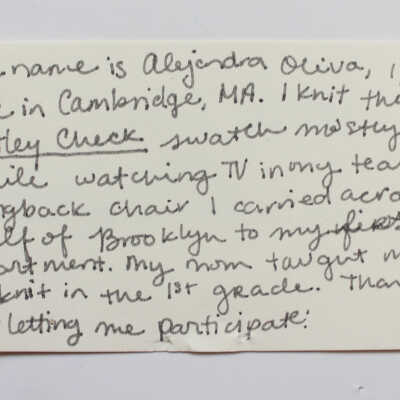 name is Alejandra Oliva, I
in Cambridge, MA. I knit th
tley Check swatch mostly
ile watching TV in my tea
gback chair I carried acro
lf of Brooklyn to my first
artment. My mom taught m
knit in the 1st grade. Than
letting me participate!